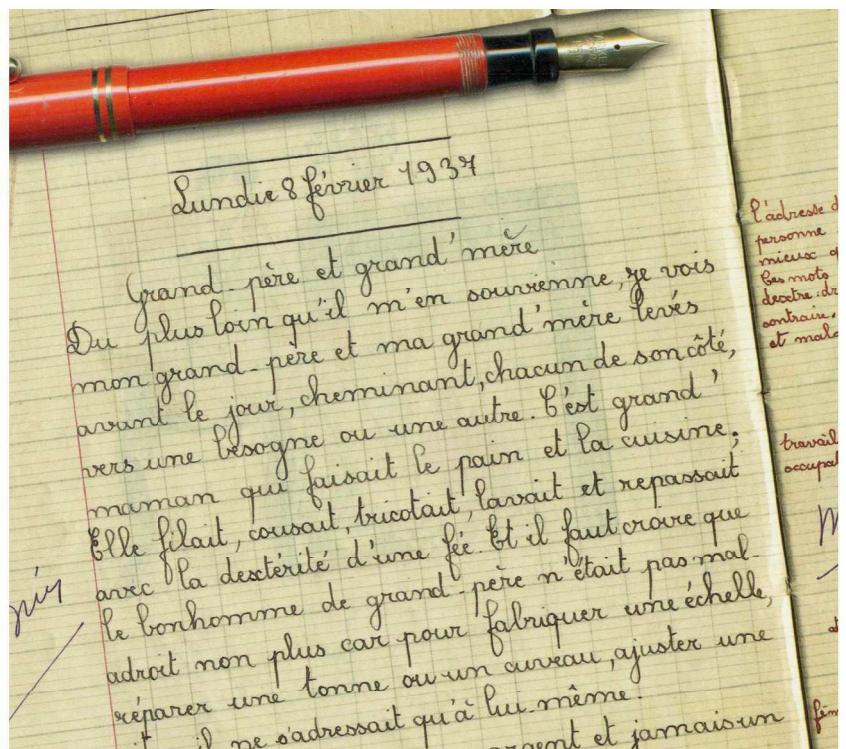 Lundi 8 février 1937
Grand-père et grand'mère
Du plus loin qu'il m'en souvienne, je vois
mon grand-père et ma grand'mère levés
avant le jour, cheminant, chacun de son côté,
vers une besogne ou une autre. C'est grand'
maman qui faisait le pain et la cuisine;
Elle filait, cousait, tricotait, lavait et repassait
avec la dextérité d'une fée. Et il faut croire que
le bonhomme de grand-père n'était pas mal-
adroit non plus car pour fabriquer une échelle,
réparer une tonne ou un cuveau, ajuster une
il ne s'adressait qu'à lui-même.
et jamais un
l'adresse d
personne
mieux
Les mots
dextre: dr
contraire,
et mala
travail
occupat